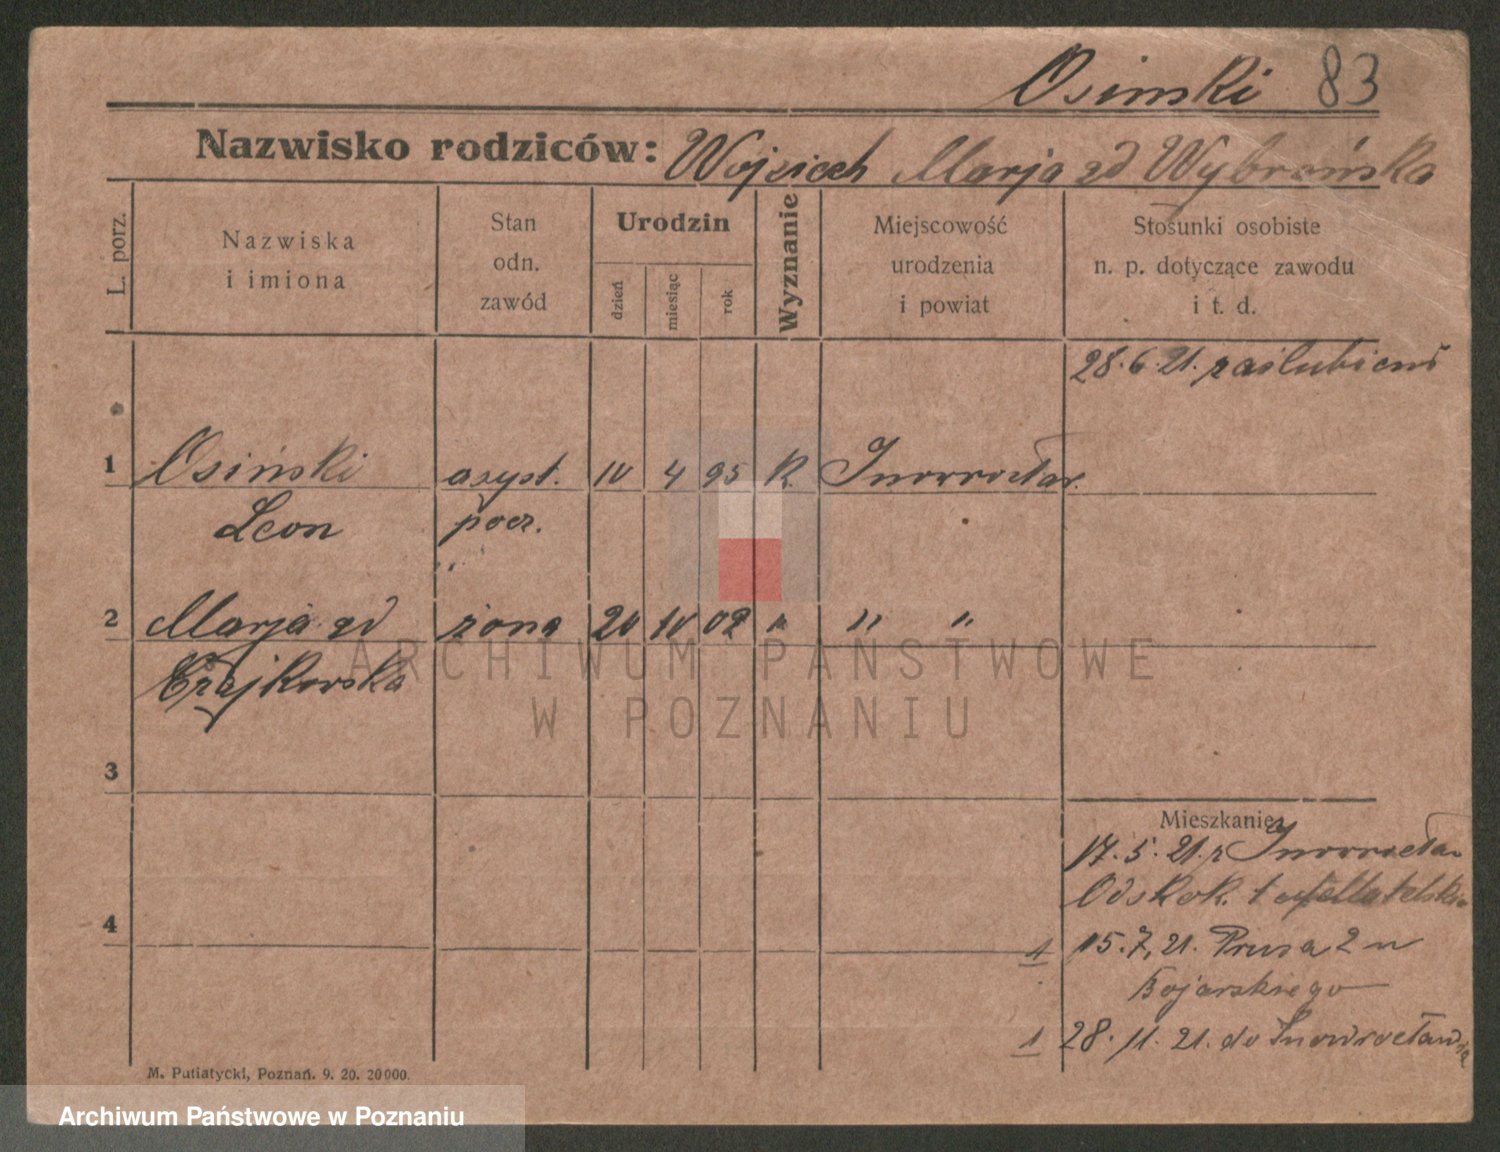 Osinski 83
Nazwisko rodziców: Wojciech Marja zd Wybrańska
L. porz.
Nazwiska i imiona
Stan odn. zawód
Urodzin
dzień
miesiąc
rok
Wyznanie
Miejscowość urodzenia i powiat
Stosunki osobiste n. p. dotyczące zawodu i t. d.
28.6.21. zaślubieni
1 Osiński asyst. 10 4 95 K. Inowrocław.
Leon pocz.
2 Marja zd żona 20 10 02 " " "
Czajkowska
3
Mieszkanie
17.5.21. z Inowrocław
Odskok. 1
4
1 15.7.21. Prusa 2 u
Bojarskiego
1 28.11.21. do Inowrocławia
M. Putiatycki, Poznań. 9. 20. 20000.
ARCHIWUM PAŃSTWOWE
W POZNANIU
Archiwum Państwowe w Poznaniu